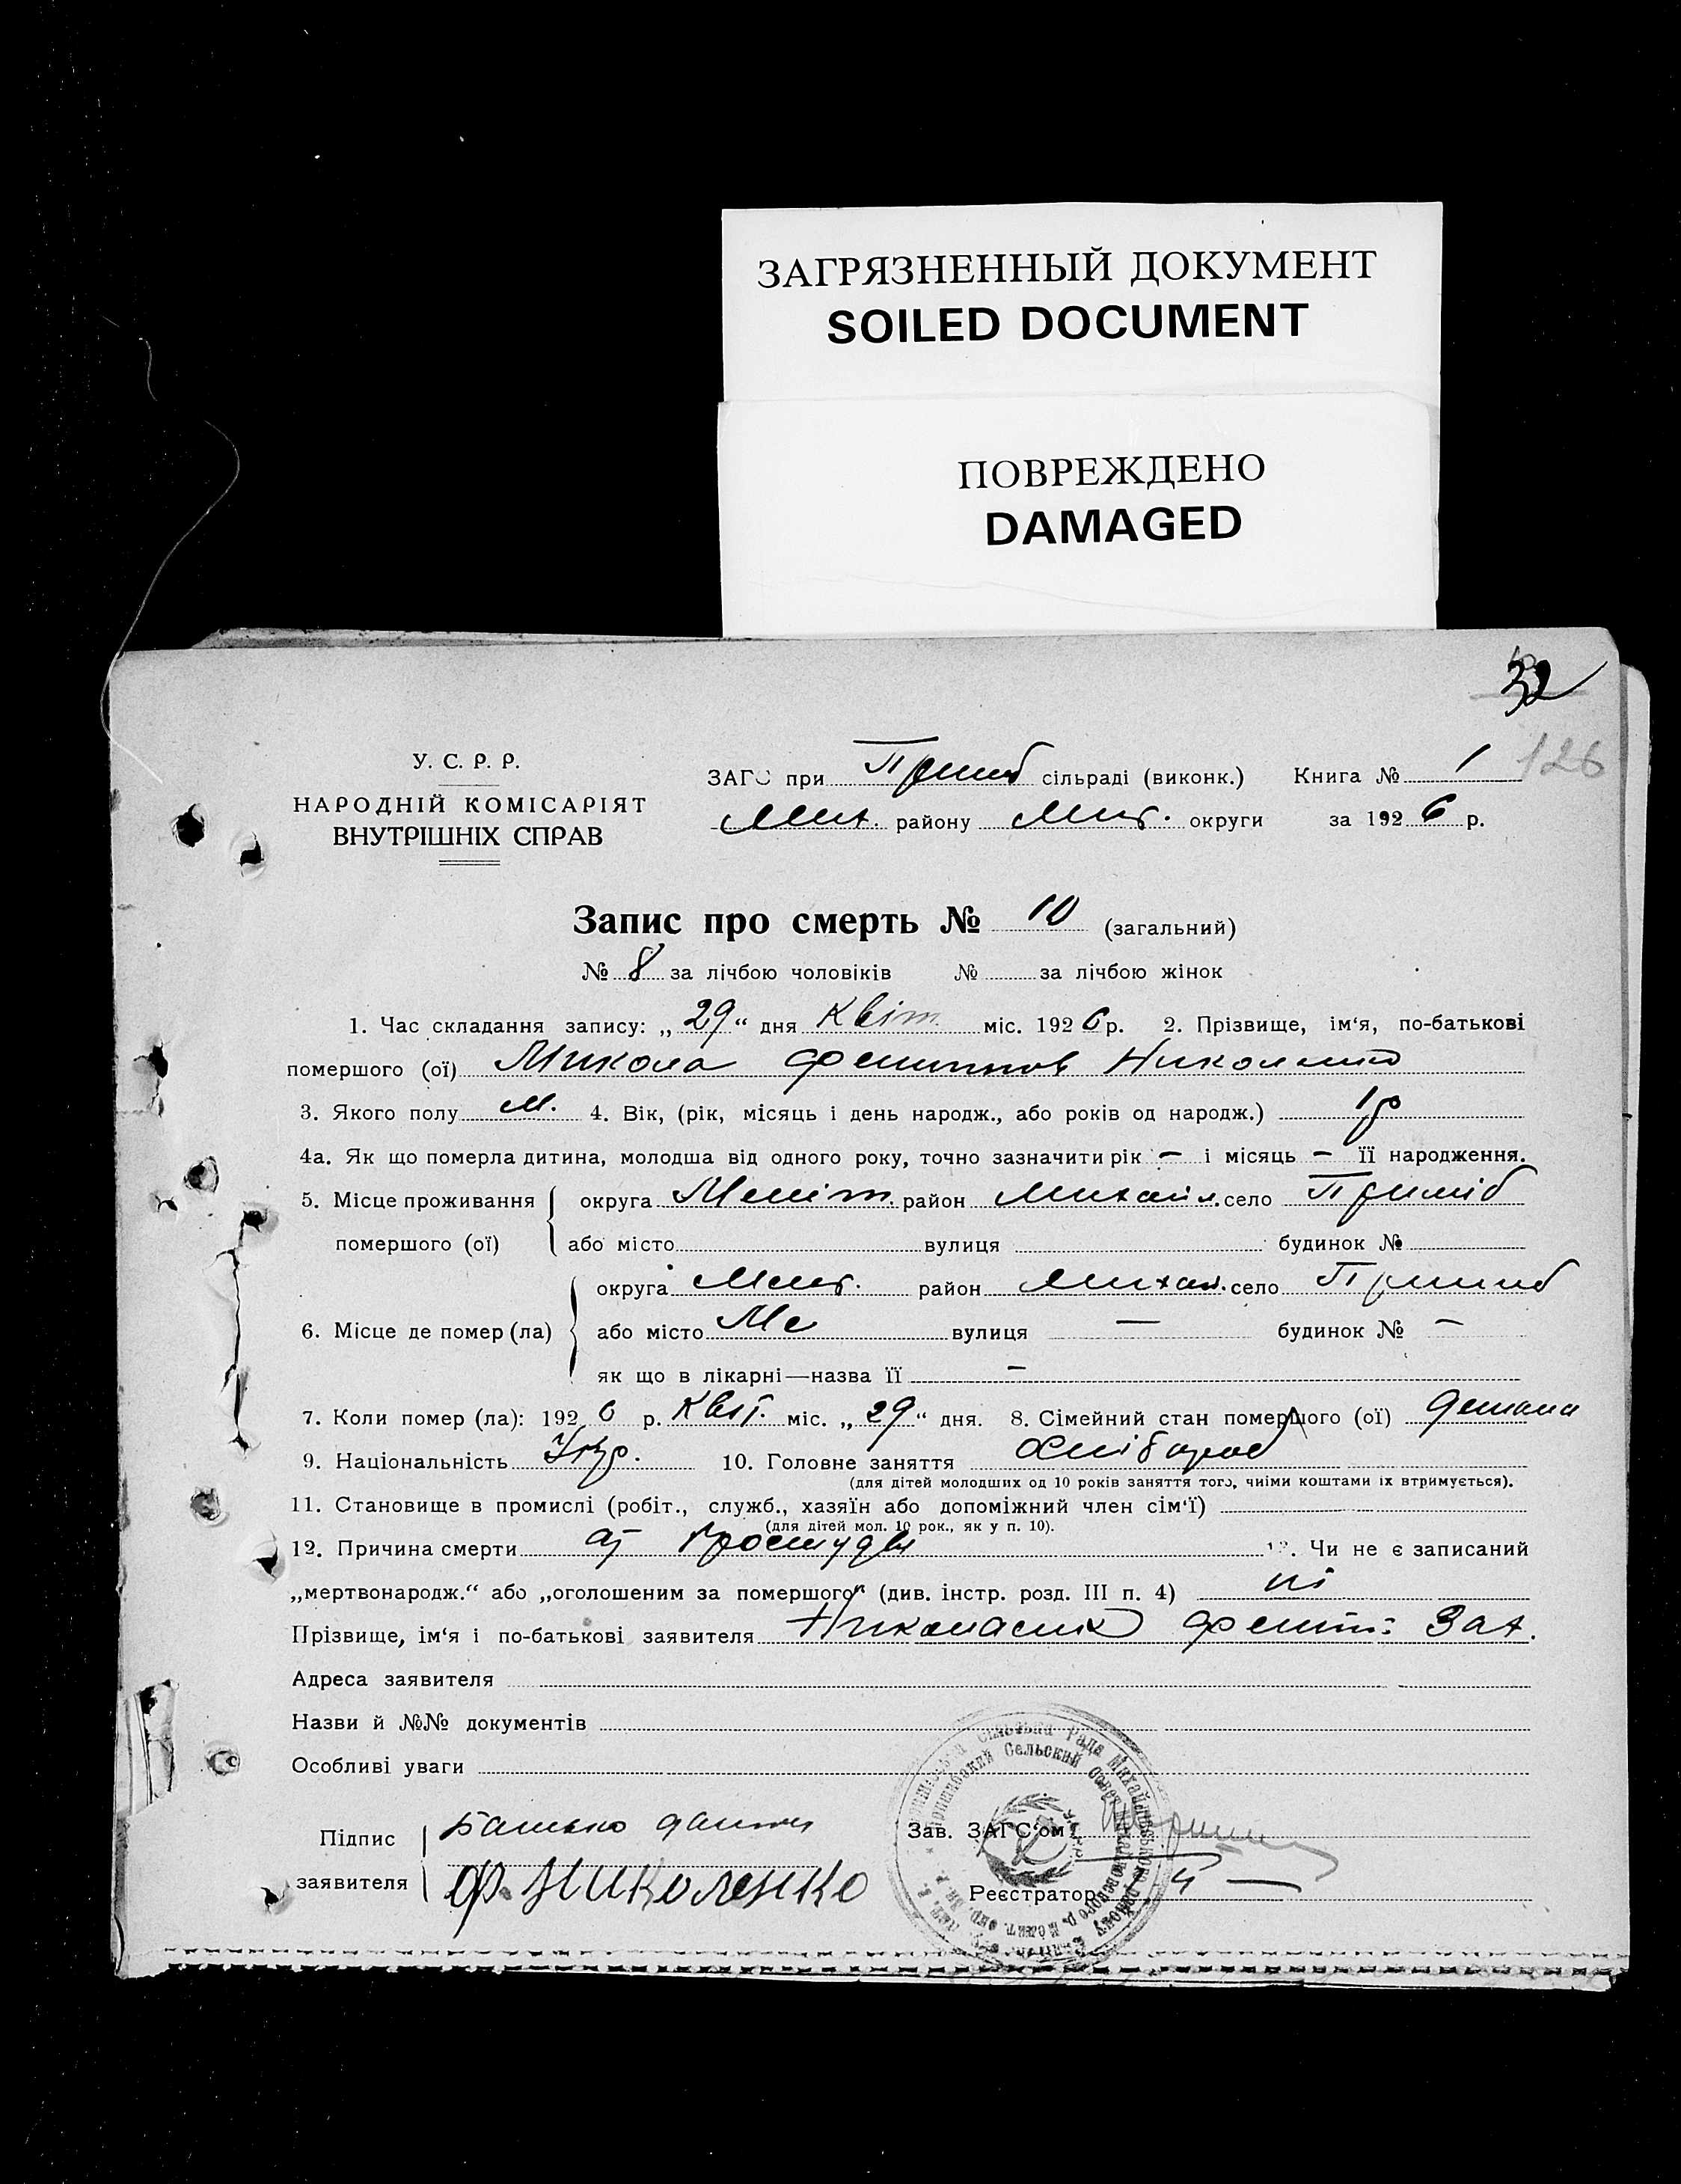 ЗАГРЯЗНЕННЫЙ ДОКУМЕНТ
SOILED DOCUMENT
ПОВРЕЖДЕНО
DAMAGED
32
126
У. С. Р. Р.
НАРОДНІЙ КОМІСАРІЯТ
ВНУТРІШНІХ СПРАВ
ЗАГС при Пришиб сільраді (виконк.) Книга № 1
Мих. району Мел. округи за 1926 р.
Запис про смерть № 10 (загальний)
№ 8 за лічбою чоловіків № за лічбою жінок
1. Час складання запису: „29“ дня Квіт. міс. 1926 р. 2. Прізвище, ім‘я, по-батькові
помершого (ої) Микола Филиппов Николенко
3. Якого полу м. 4. Вік, (рік, місяць і день народж., або років од народж.) 1 р
4а. Як що померла дитина, молодша від одного року, точно зазначити рік – і місяць – її народження.
5. Місце проживання округа Меліт. район Михайл. село Пришиб
помершого (ої) або місто вулиця будинок №
округа Мел. район Михай. село Пришиб
6. Місце де помер (ла) або місто Ме вулиця — будинок № –
як що в лікарні—назва її –
7. Коли помер (ла): 1926 р. Квіт. міс. „29“ дня. 8. Сімейний стан помершого (ої) детина
9. Національність Укр. 10. Головне заняття Хлібороб
(для дітей молодших од 10 років заняття того, чиїми коштами їх втримується).
11. Становище в промислі (робіт., служб., хазяїн або допоміжний член сім‘ї)
(для дітей мол. 10 рок., як у п. 10).
12. Причина смерти От простуды 13. Чи не є записаний
„мертвонародж.“ або „оголошеним за помершого“ (див. інстр. розд. III п. 4) ні
Прізвище, ім‘я і по-батькові заявителя Николаенко Филип: Зах.
Адреса заявителя
Назви й №№ документів
Особливі уваги
Підпис Батько
заявителя Ф. Николенко
Зав. ЗАГС‘ом
Реєстратор
Сільська Рада Михайлівського району
Пришибский Сельский Совет Михайловского р. Мелит. окр.